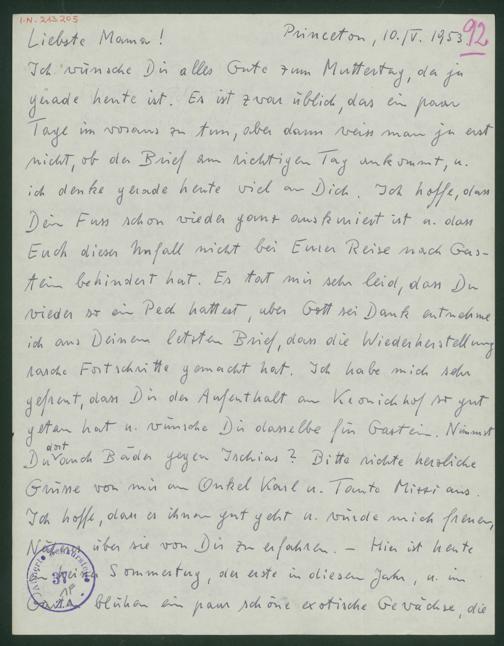 I.N. 213.205
92
Liebste Mama! Princeton, 10./V. 1953
Ich wünsche Dir alles Gute zum Muttertag, der ja
gerade heute ist. Es ist zwar üblich, das ein paar
Tage im voraus zu tun, aber dann weiss man ja erst
nicht, ob der Brief am richtigen Tag ankommt, u.
ich denke gerade heute viel an Dich. Ich hoffe, dass
Dein Fuss schon wieder ganz auskuriert ist u. dass
Euch dieser Unfall nicht bei Eurer Reise nach Gas-
tein behindert hat. Es tat mir sehr leid, dass Du
wieder so ein Pech hattest, aber Gott sei Dank entnehme
ich aus Deinem letzten Brief, dass die Wiederherstellung
rasche Fortschritte gemacht hat. Ich habe mich sehr
gefreut, dass Dir der Aufenthalt am so gut
getan hat u. wünsche Dir dasselbe für Gastein. Nimmst
Du dort auch Bäder gegen Ischias? Bitte richte herzliche
Grüsse von mir an Onkel Karl u. Tante Mizzi aus.
Ich hoffe, dass es ihnen gut geht u. würde mich freuen,
über sie von Dir zu erfahren. – Hier ist heute
ein Sommertag, der erste in diesem Jahr, u. im
Garten blühen ein paar schöne exotische Gewächse, die
37